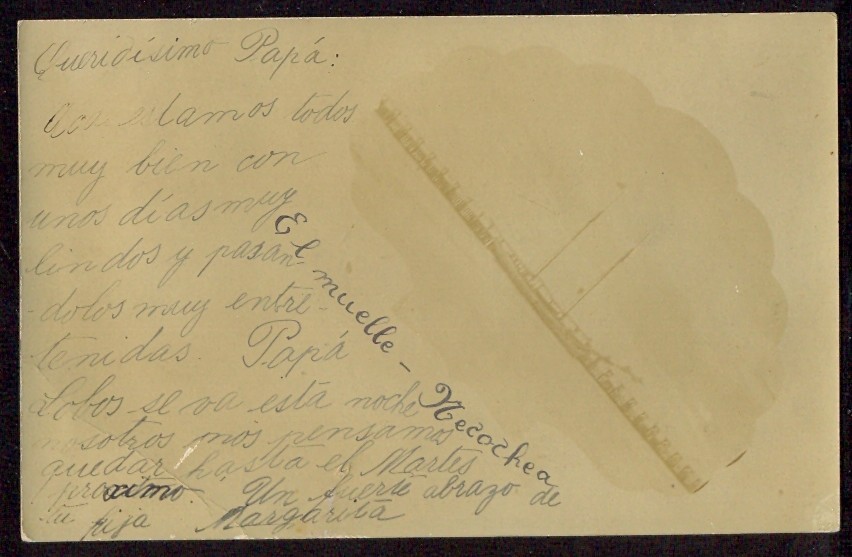 Queridísimo Papá:
Acá estamos todos
muy bien con
unos días muy
lindos y pasan-
dolos muy entre-
tenidas. Papá
Lobos se va esta noche
nosotros nos pensamos
quedar hasta el Martes
proximo. Un fuerte abrazo de
tu hija Margarita
El muelle - Necochea